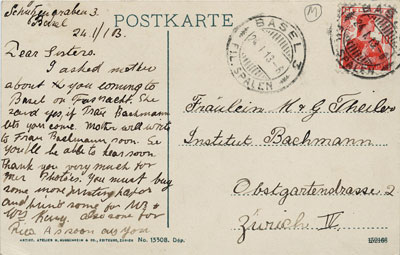 Schützengraben 3.
Basel
24 1/13.
POSTKARTE
BASEL 3
SPALEN
Dear Sisters.
I asked mother
about you coming to
Basel on Fasnacht. She
said yes if Frau Bachmann
lets you come. Mother will write
to Frau Bachmann soon. So
you'll be able to hear soon.
Thank you very much for
Photo's. You must buy
some more printing paper
and print some for
one for
As soon as you
Fräulein M & G Theiler
Institut Bachmann
Obstgartendrasse 2
Zürich IV.
No. 13308. Dép.